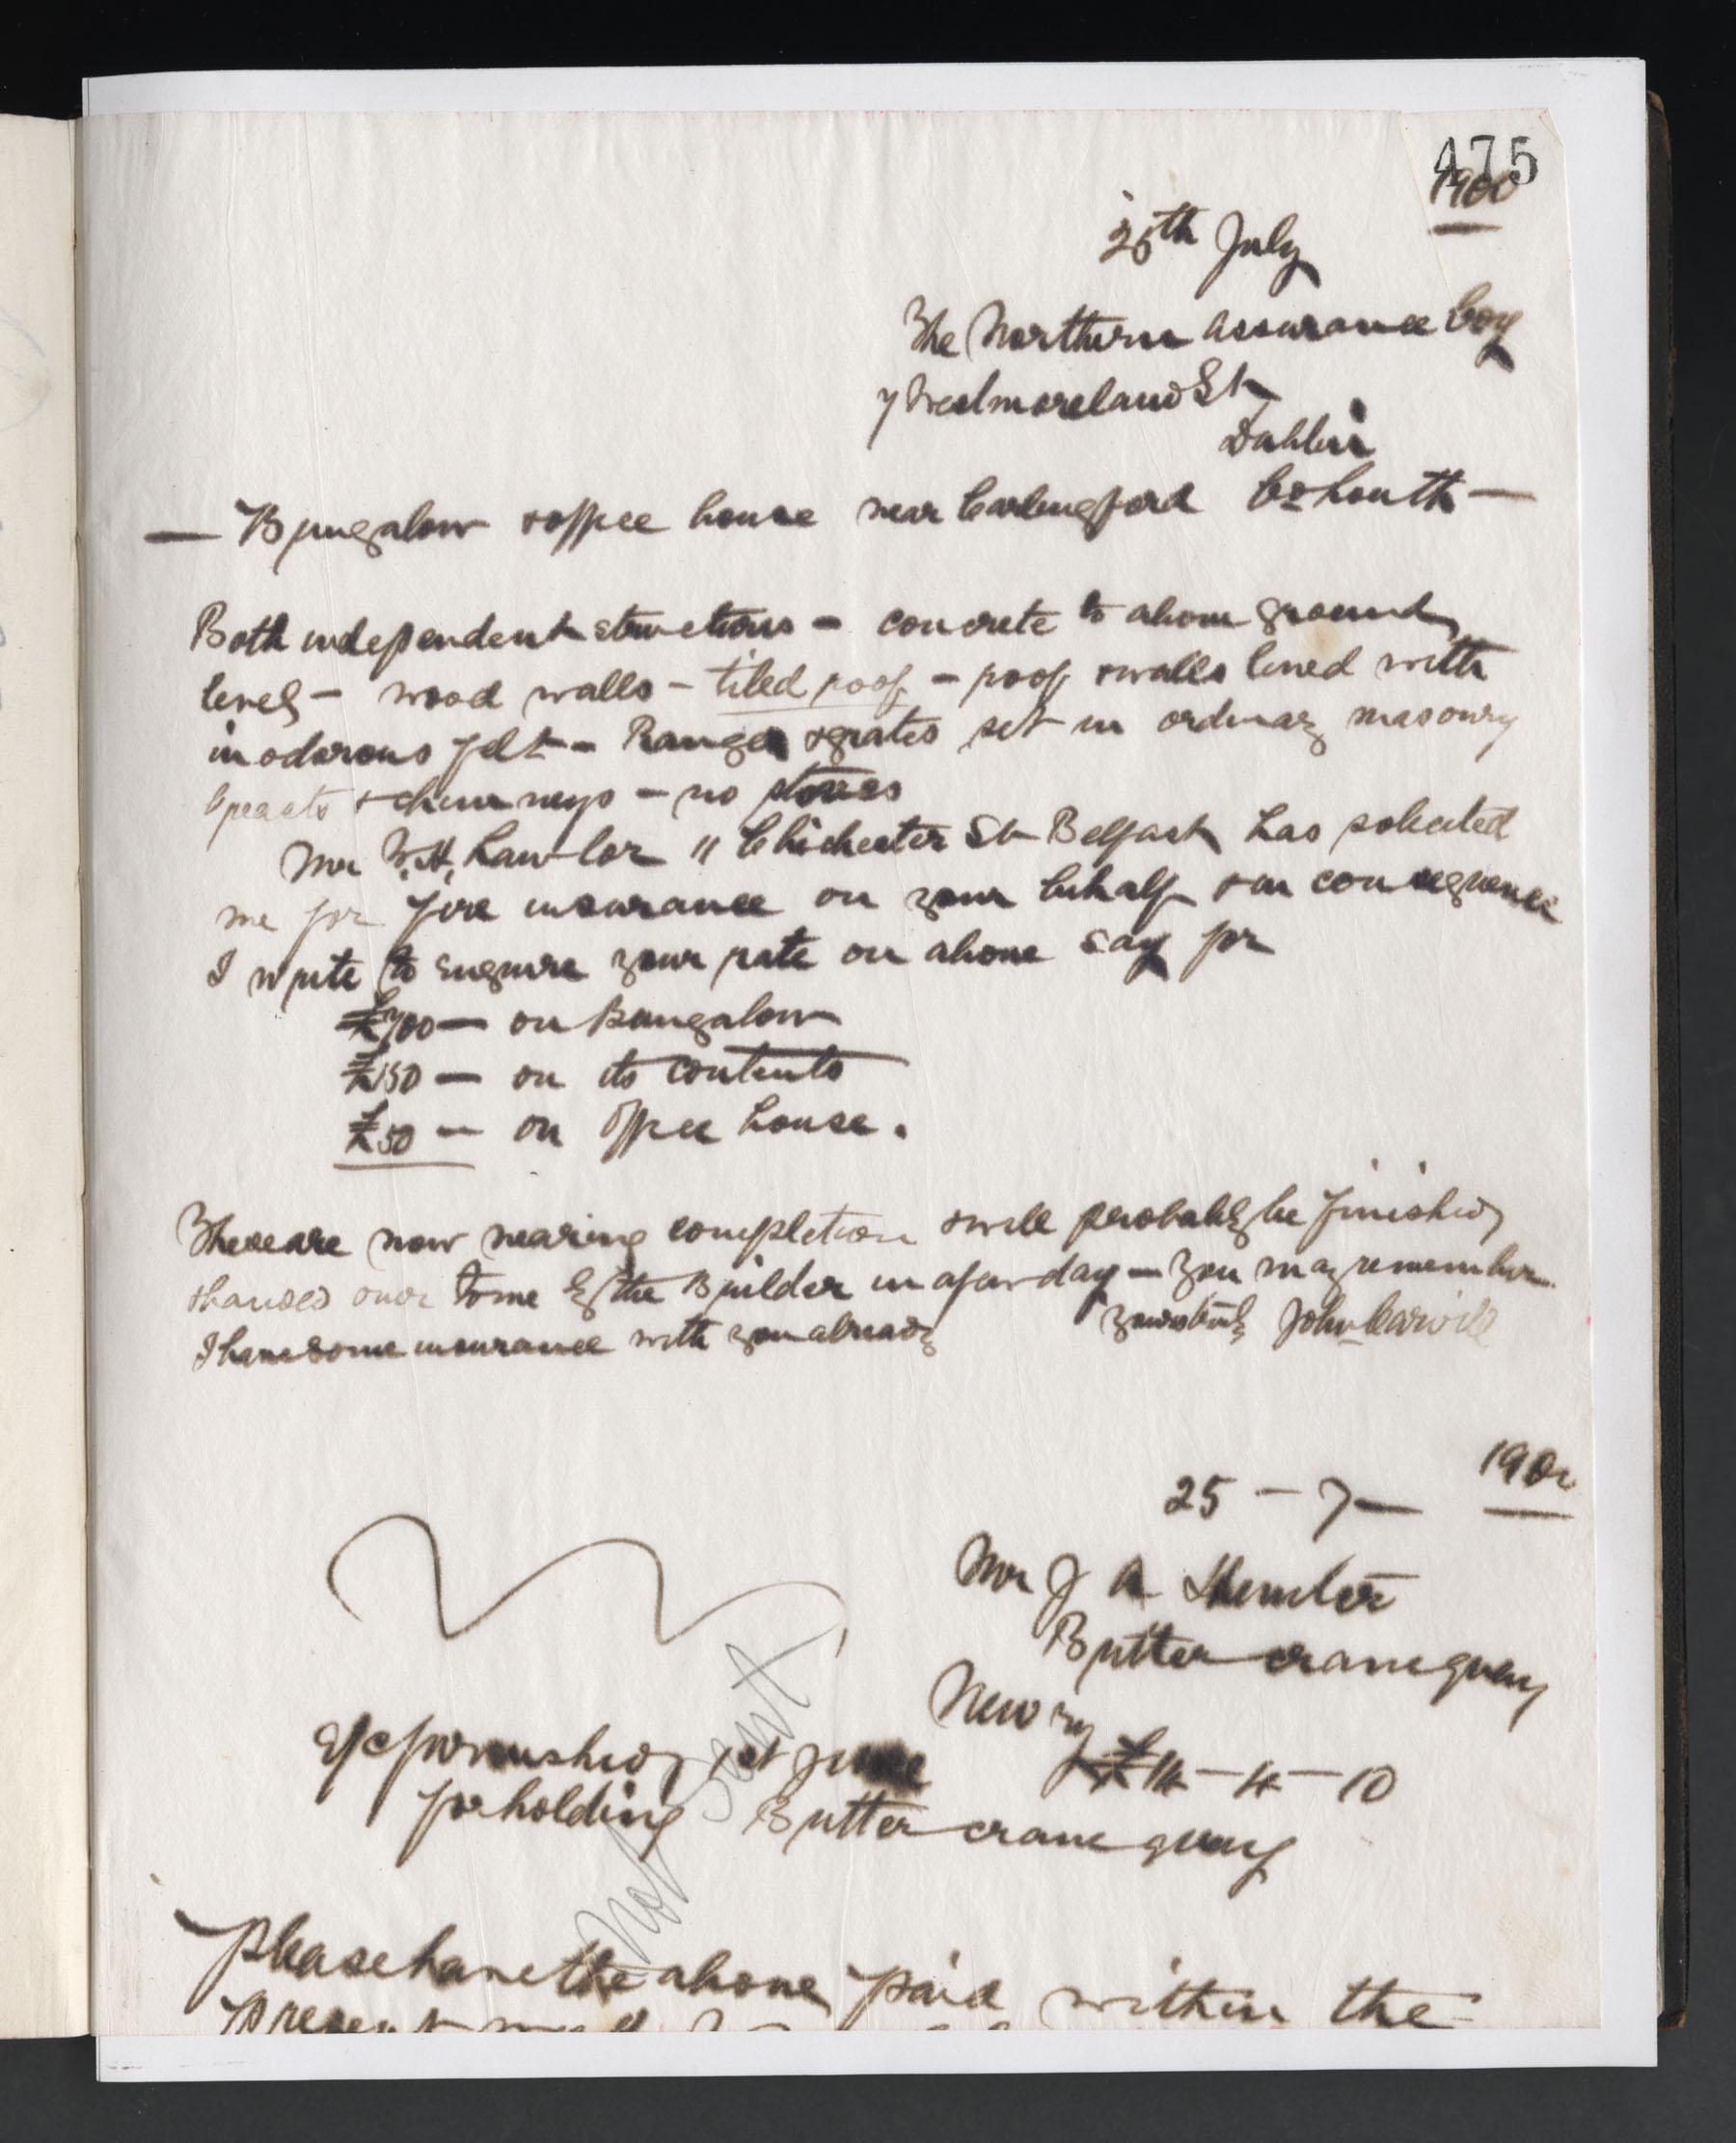 475
1900
25th July
The Northern Assurance Coy
7 Westmoreland St
Dublin
— Bungalow & office house near Carlingford Co Louth —
Both independent structures - concrete to above ground
level - wood walls - tiled roof - roof & walls lined with
inodorous felt - Ranges & grates set in ordinary masonry
breasts & chimneys - no stoves
Mr W.H. Lawlor 11 Chichester St Belfast has solicited
me for fire insurance on your behalf & in consequence
I write to enquire your rate on above say for
£700 — on Bungalow
£150 — on its contents
£50 — on office house.
These are now nearing completion & will probably be finished
& handed over to me by the Builder in a few day - You may remember
I have some insurance with you already yours truly John Carvill
25 - 7 - 1900
Mr J A
Butter crane quay
Newry
a/c furnished 1st June £14 - 4 - 10
for holding Butter crane quay
Not Sent
Please have the above paid within the
present